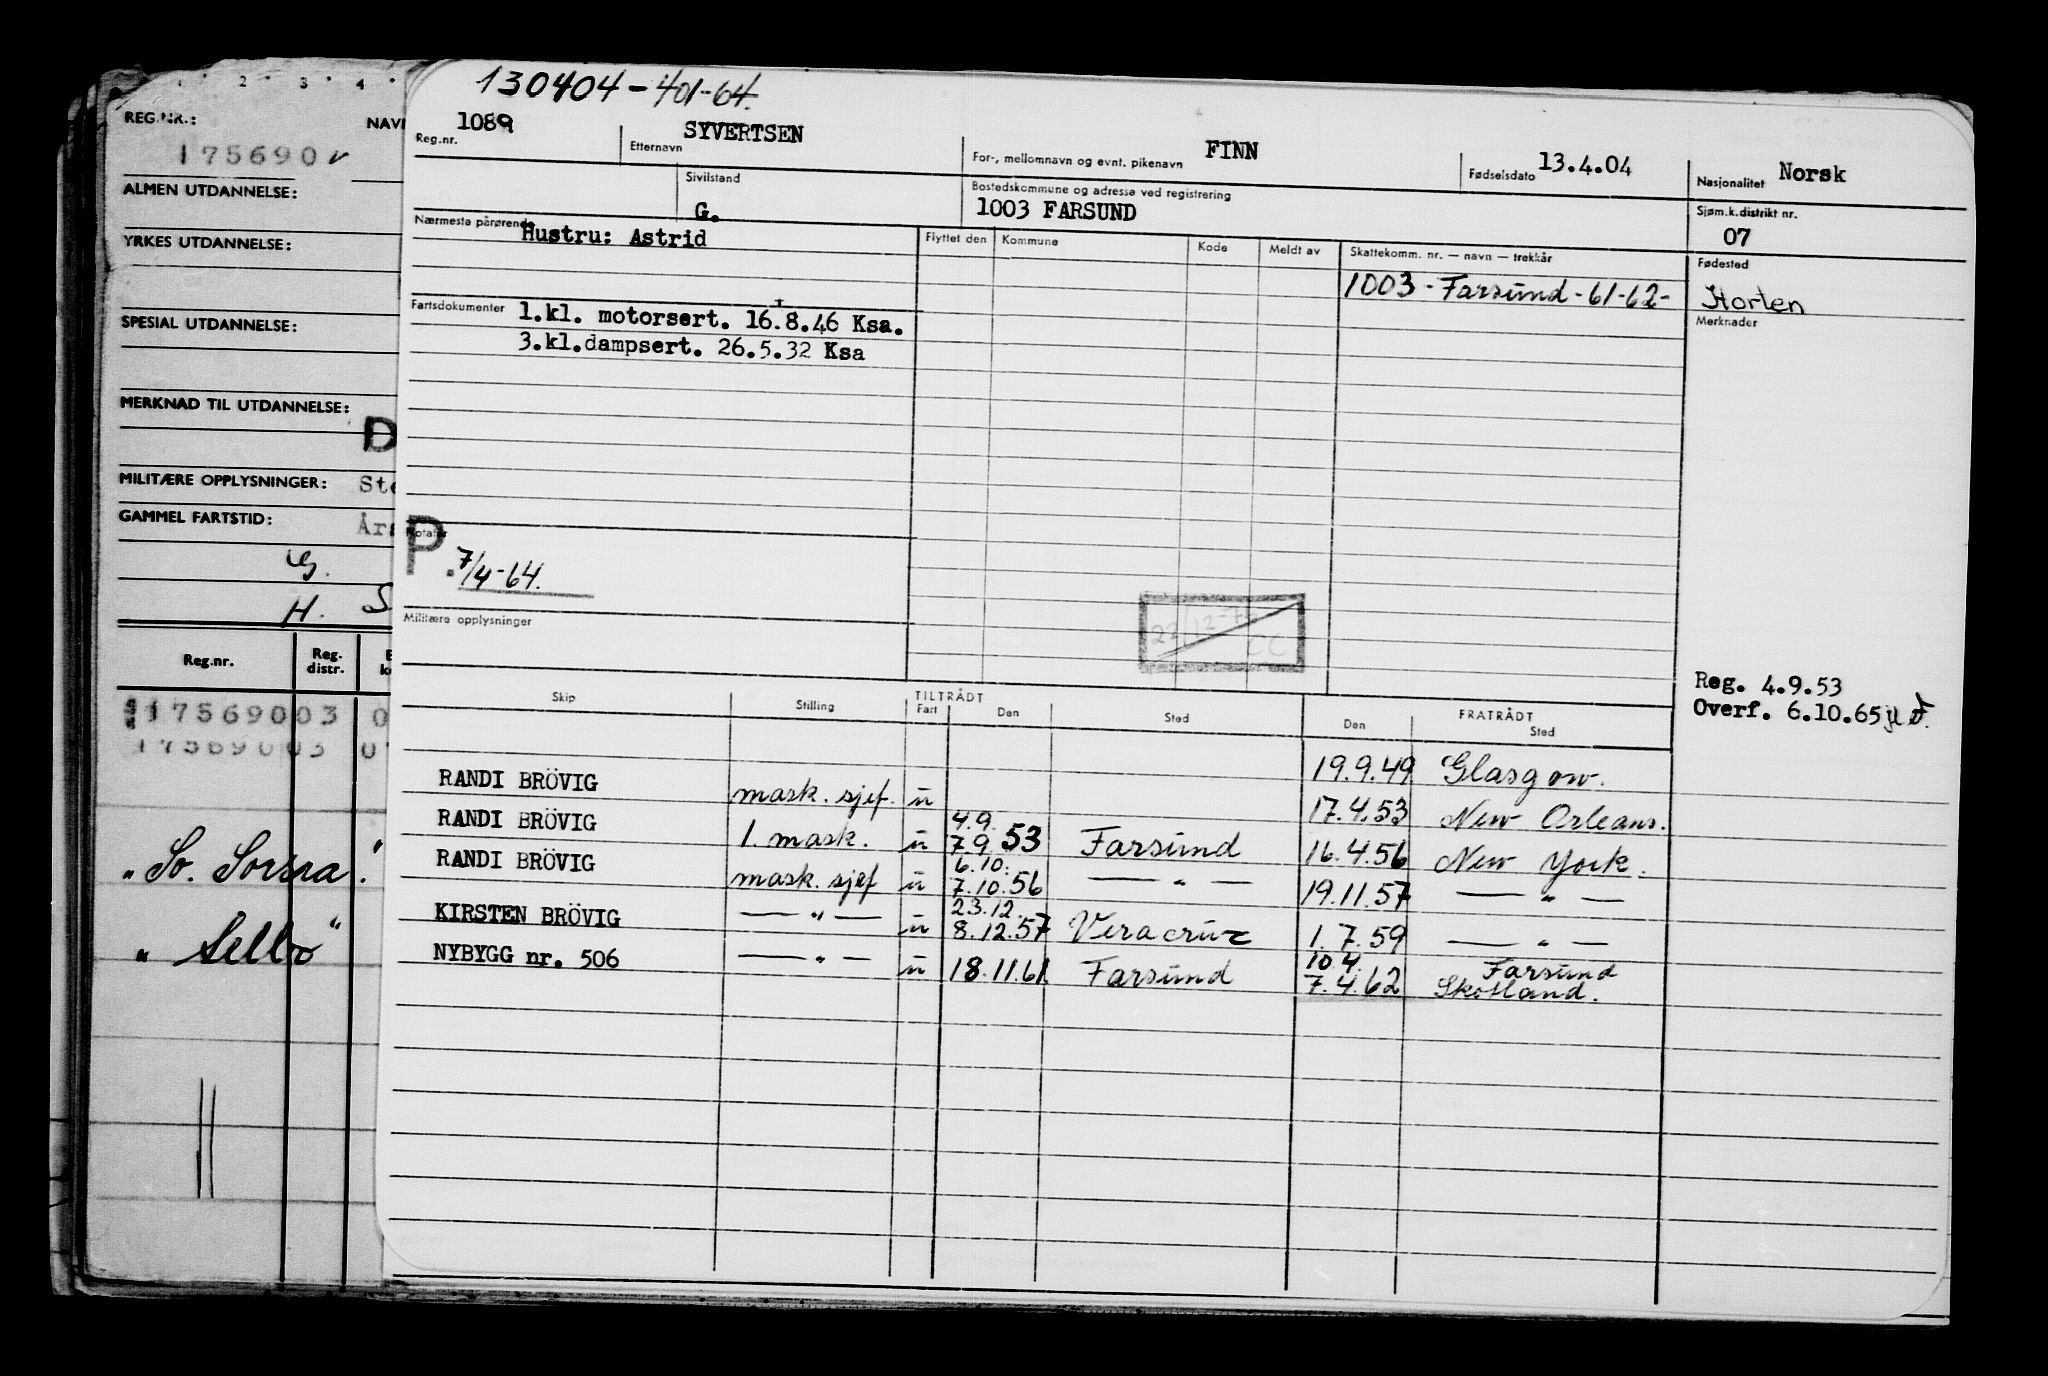 1 2 3 4
REG.NR.: NAV
175690 v
ALMEN UTDANNELSE:
YRKES UTDANNELSE:
SPESIAL UTDANNELSE:
MERKNAD TIL UTDANNELSE:
D
MILITÆRE OPPLYSNINGER: Ste
GAMMEL FARTSTID: År
G.
H. S
Reg.nr. Reg. distr.
17569003 0
17569003 0
"So. Sorsra".
"Sello"
130404-401-64.
Reg.nr. 1089 Etternavn SYVERTSEN For-, mellomnavn og evnt. pikenavn FINN Fødselsdato 13.4.04 Nasjonalitet Norsk
Sivilstand G. Bostedskommune og adresse ved registrering 1003 FARSUND Sjøm.k.distrikt nr. 07
Nærmeste pårørende Hustru: Astrid Flyttet den Kommune Kode Meldt av Skattekomm. nr. — navn — trekkår Fødested
1003 - Farsund - 61-62- Horten
Fartsdokumenter 1.kl. motorsert. 16.8.46 Ksa. Merknader
3.kl.dampsert. 26.5.32 Ksa
Notater
P. 7/4-64.
22/12-7 CC
Militære opplysninger
Reg. 4.9.53
Overf. 6.10.65
Skip Stilling TILTRÅDT FRATRÅDT
Fart Den Sted Den Sted
RANDI BRÖVIG mask. sjef. u 19.9.49 Glasgow.
RANDI BRÖVIG 1. mask. u 4.9. 7.9. 53 Farsund 17.4.53 New Orleans.
RANDI BRÖVIG mask. sjef u 6.10. 7.10.56 — " — 16.4.56 New York.
KIRSTEN BRÖVIG — " — u 23.12. 8.12.57 Veracruz 19.11.57 — " —
NYBYGG nr. 506 — " — u 18.11.61. Farsund 1.7.59 — " —
10.4. Farsund
7.4.62 Skotland.